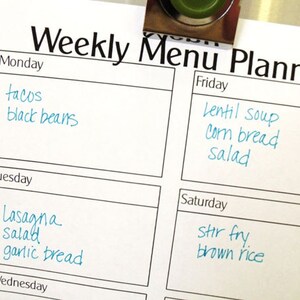 Weekly Menu Plann
Monday
tacos
black beans
Friday
lentil soup
corn bread
salad
uesday
lasagna
salad
garlic bread
Saturday
stir fry
brown rice
Wednesday